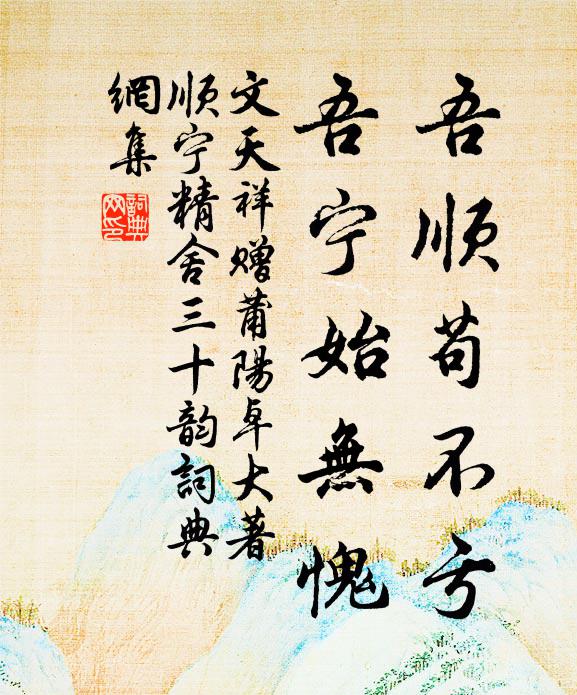 吾順苟不亏
吾宁始無愧
文天祥贈莆陽卓大著
順宁精舍三十韵詞典
網集
詞典
网印